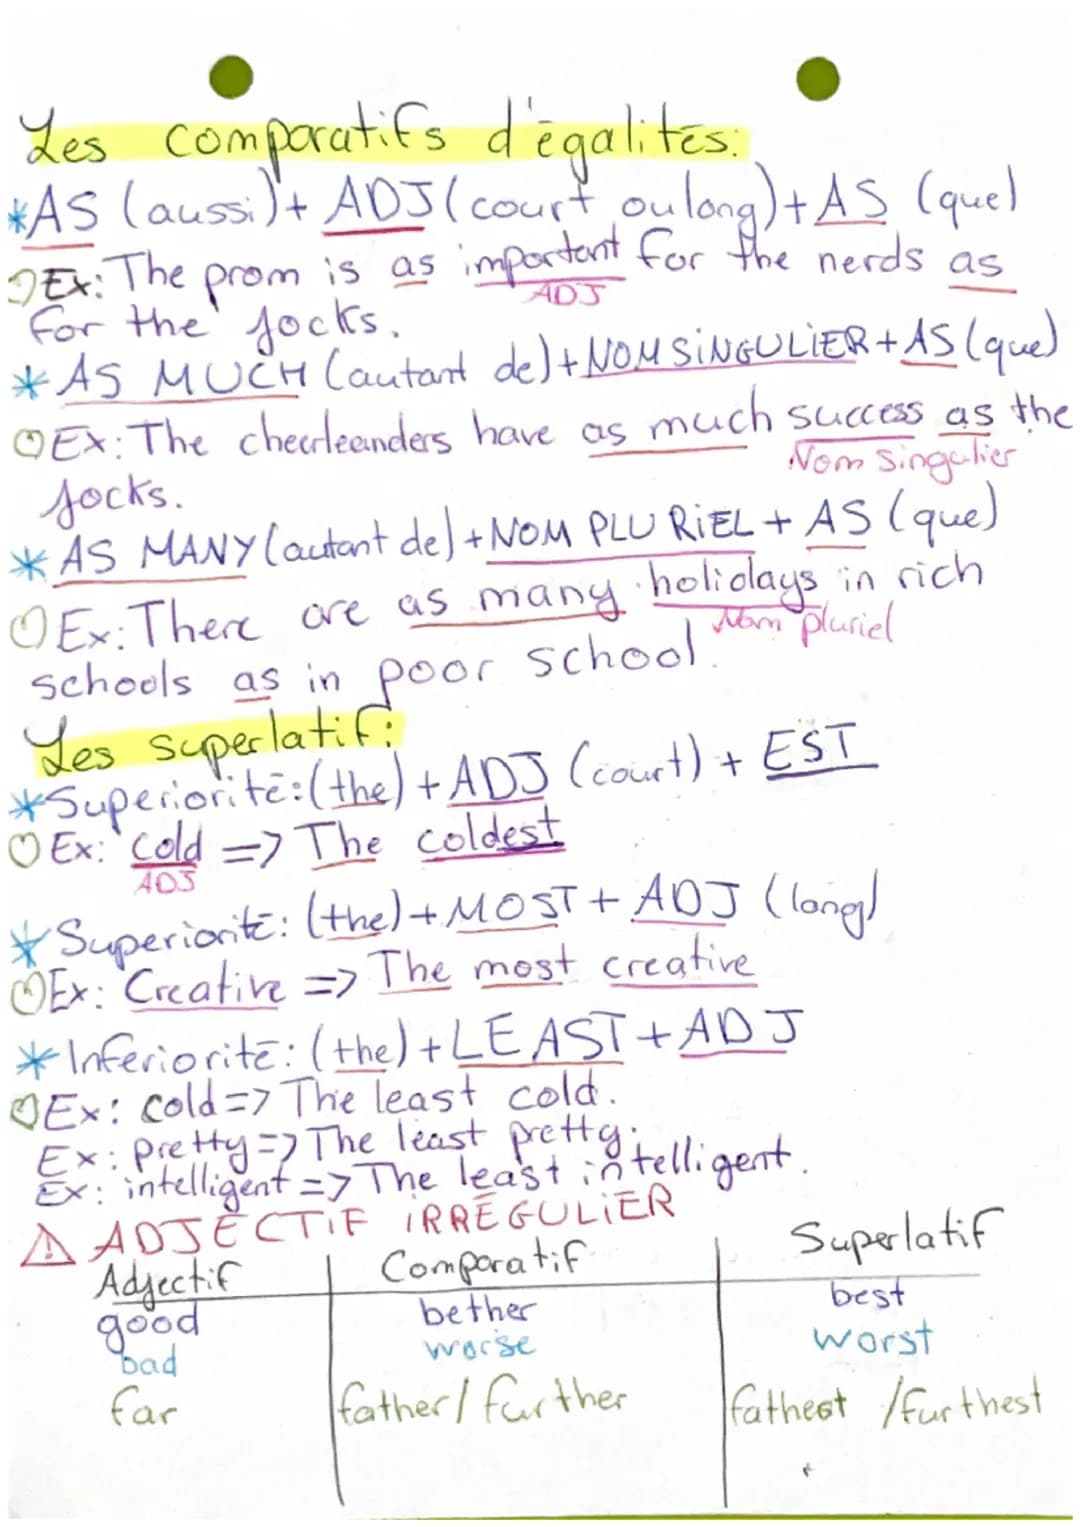 Les comparatifs d'égalités:
*AS (aussi) + ADJ (court ou long) + AS (que)
Ex: The prom is as important for the nerds as
ADJ
for the jocks.
* AS MUCH (autant de) + NOM SINGULIER + AS (que)
Ex: The cheerleanders have as much success as the
Nom Singulier
jocks.
* AS MANY (autant de) + NOM PLURIEL + AS (que)
Ex: There are as many holidays in rich
Nom pluriel
schools as in poor school.
Les superlatif:
*Superiorité: (the) + ADJ (court) + EST
Ex: cold => The coldest
ADJ
* Superiorité: (the) + MOST + ADJ (long)
Ex: Creative => The most creative
* Inferiorité: (the) + LEAST + ADJ
Ex: cold => The least cold.
Ex: pretty => The least pretty.
Ex: intelligent => The least intelligent.
⚠ ADJECTIF IRRÉGULIER
Adjectif Comparatif Superlatif
good bether best
bad worse worst
far father / further fathest / furthest